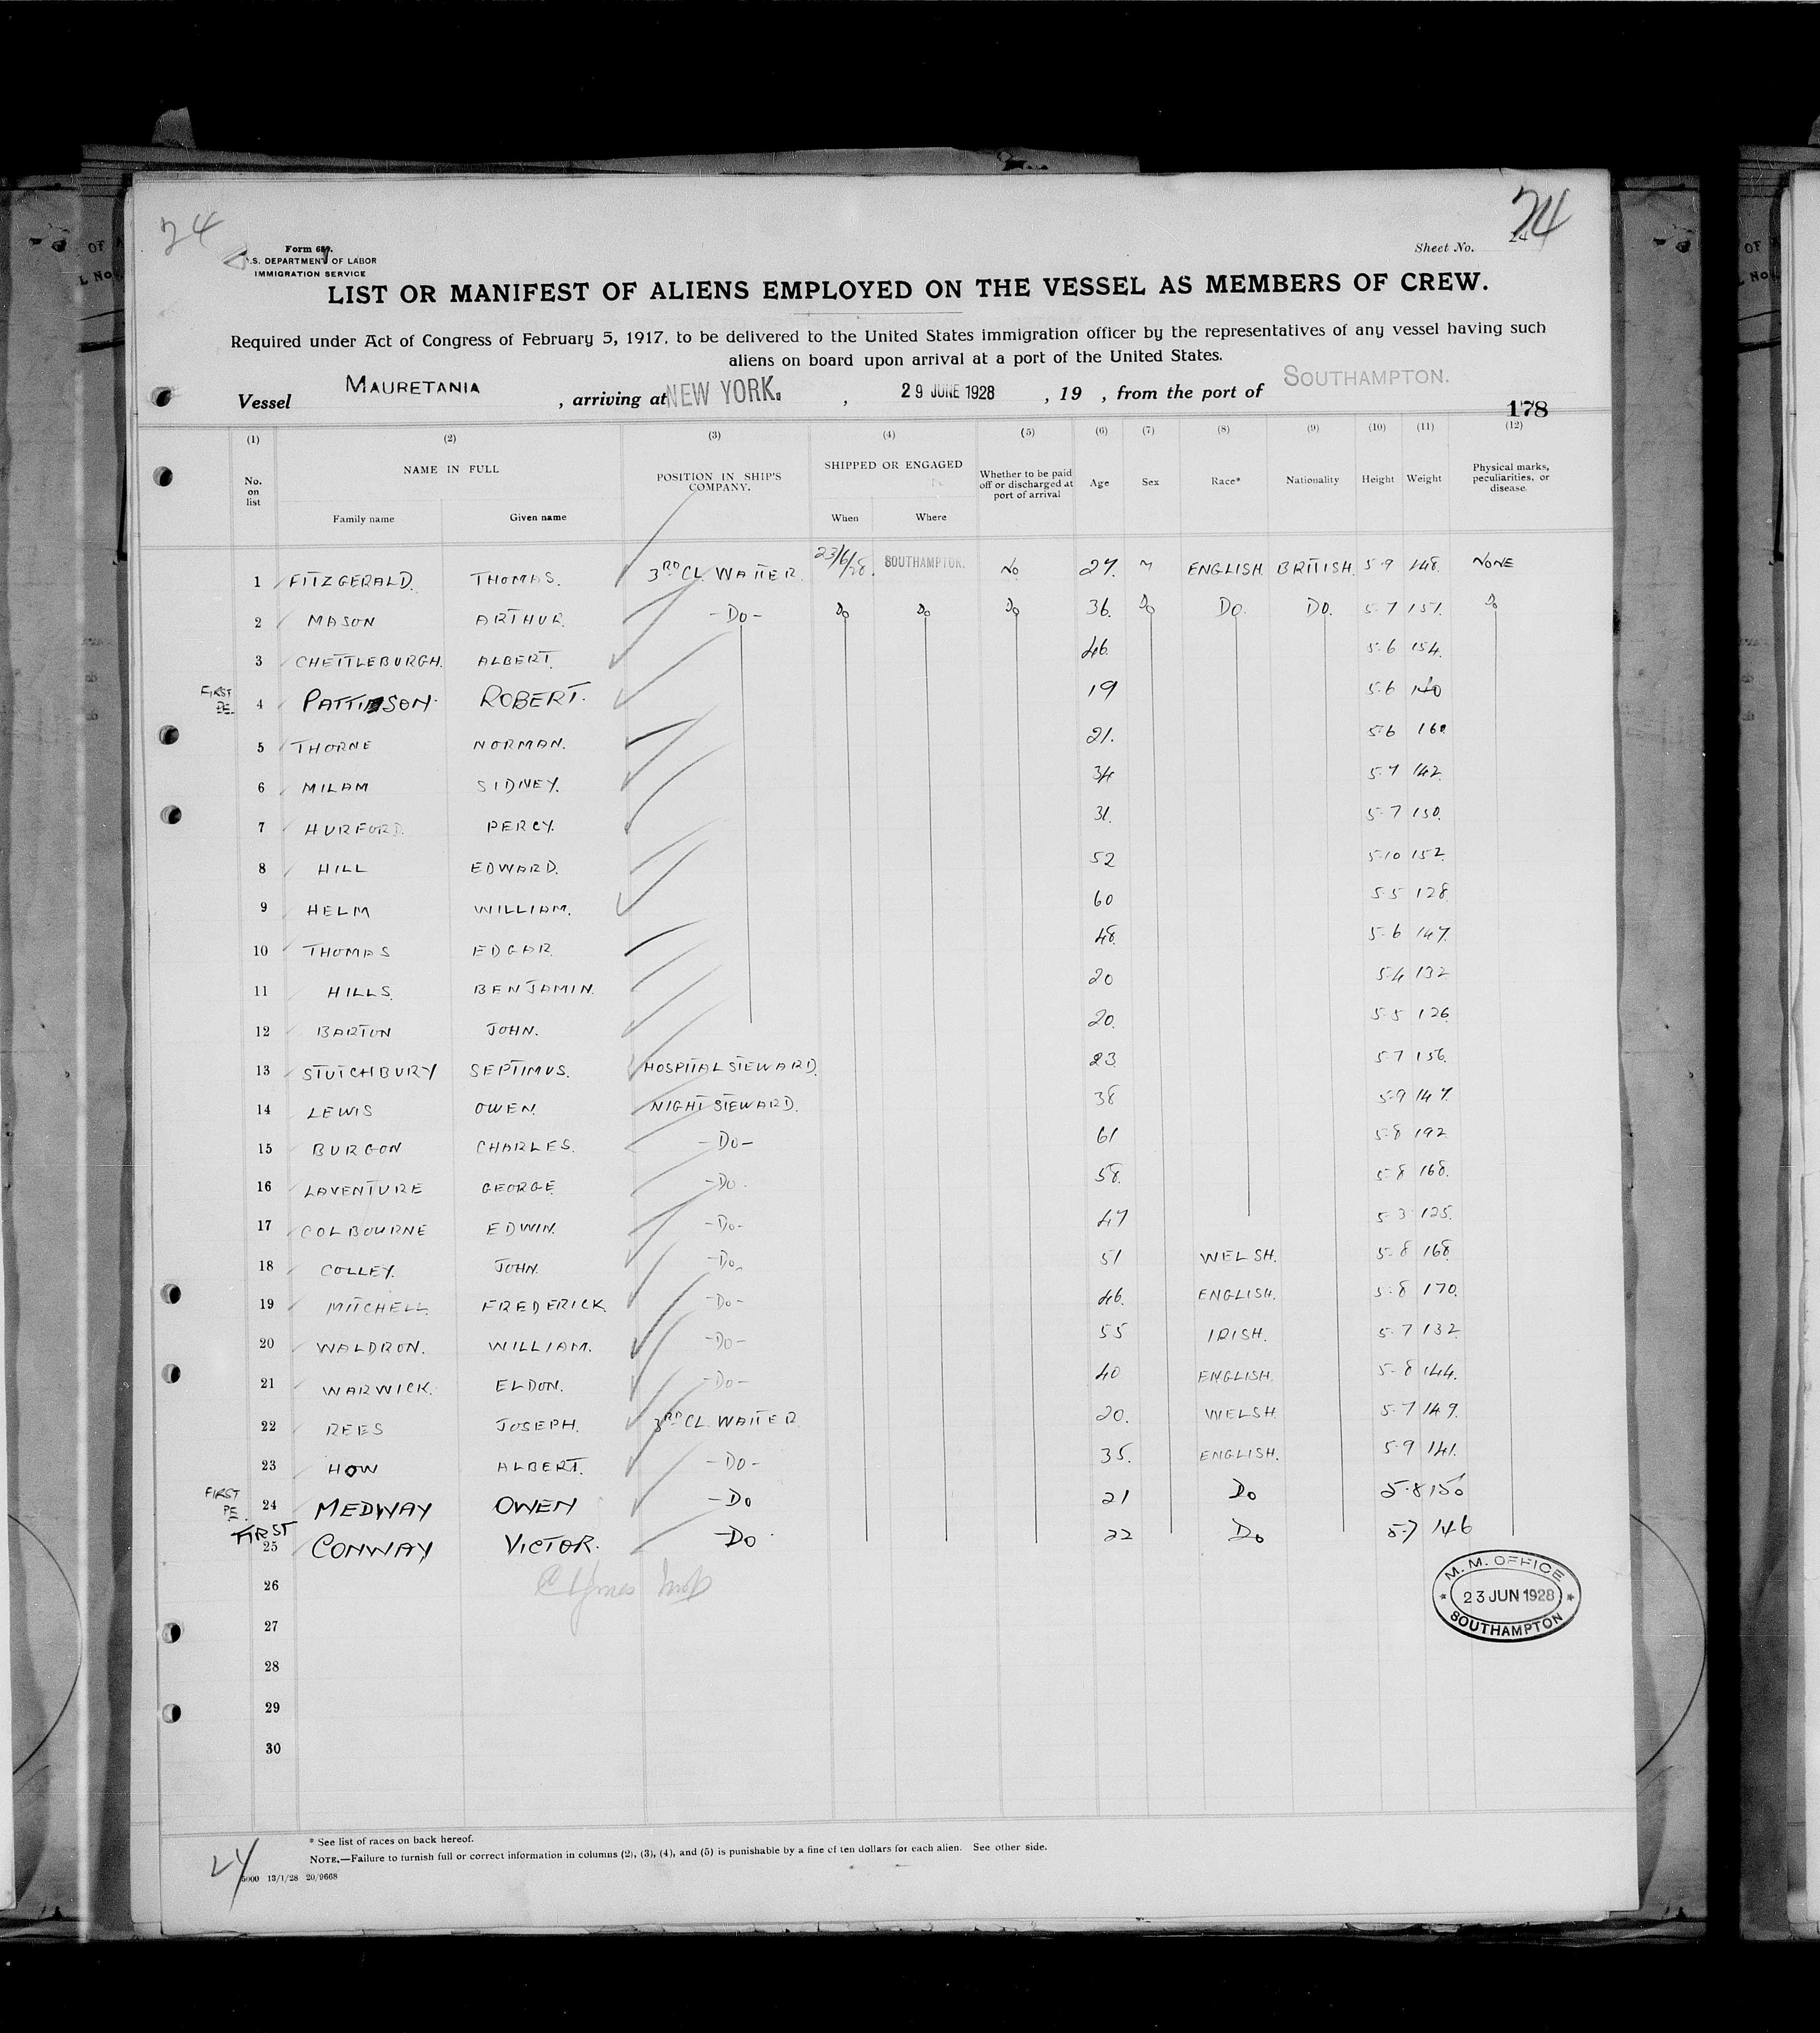 24
24
Form 689.
U.S. DEPARTMENT OF LABOR
IMMIGRATION SERVICE
Sheet No. 24
LIST OR MANIFEST OF ALIENS EMPLOYED ON THE VESSEL AS MEMBERS OF CREW.
Required under Act of Congress of February 5, 1917, to be delivered to the United States immigration officer by the representatives of any vessel having such
aliens on board upon arrival at a port of the United States.
Vessel MAURETANIA , arriving at NEW YORK. , 29 JUNE 1928 , 19 , from the port of SOUTHAMPTON.
178
(1) (2) (3) (4) (5) (6) (7) (8) (9) (10) (11) (12)
No. on list NAME IN FULL POSITION IN SHIP'S COMPANY. SHIPPED OR ENGAGED Whether to be paid off or discharged at port of arrival Age Sex Race* Nationality Height Weight Physical marks, peculiarities, or disease
Family name Given name When Where
1 FITZGERALD. THOMAS. 3RD CL. WAITER. 23/6/28. SOUTHAMPTON. No 27. M ENGLISH. BRITISH. 5-9 148. NONE
2 MASON ARTHUR. -Do- Do Do Do 36. Do Do. Do. 5-7 151. Do
3 CHETTLEBURGH. ALBERT. 46. 5-6 154.
FIRST PE. 4 PATTINSON. ROBERT. 19 5-6 140
5 THORNE NORMAN. 21. 5-6 160.
6 MILAM SIDNEY. 34 5-7 142.
7 HURFORD. PERCY. 31. 5-7 150.
8 HILL EDWARD. 52 5-10 152.
9 HELM WILLIAM. 60 5-5 128.
10 THOMAS EDGAR. 48. 5-6 147.
11 HILLS. BENJAMIN. 20 5-4 132
12 BARTON JOHN. 20. 5-5 126.
13 STUTCHBURY SEPTIMUS. HOSPITAL STEWARD. 23 5-7 156.
14 LEWIS OWEN. NIGHT STEWARD. 38 5-9 147.
15 BURGON CHARLES. -Do- 61 5-8 192
16 LAVENTURE GEORGE. -Do. 58. 5-8 168.
17 COLBOURNE EDWIN. -Do- 47 5-3 125.
18 COLLEY. JOHN. -Do- 51 WELSH. 5-8 168.
19 MITCHELL. FREDERICK. -Do- 46. ENGLISH. 5-8 170.
20 WALDRON. WILLIAM. -Do- 55 IRISH. 5-7 132
21 WARWICK. ELDON. -Do- 40 ENGLISH. 5-8 144.
22 REES JOSEPH. 3RD CL. WAITER 20. WELSH. 5-7 149.
23 HOW ALBERT. -Do- 35. ENGLISH. 5-9 141.
FIRST PE. 24 MEDWAY OWEN -Do 21 Do 5-8 150
FIRST 25 CONWAY VICTOR. -Do 22 Do 5-7 146
26
27
28
29
30
M. M. OFFICE
23 JUN 1928
SOUTHAMPTON
* See list of races on back hereof.
NOTE.—Failure to furnish full or correct information in columns (2), (3), (4), and (5) is punishable by a fine of ten dollars for each alien. See other side.
24
5000 13/1/28 20/9668